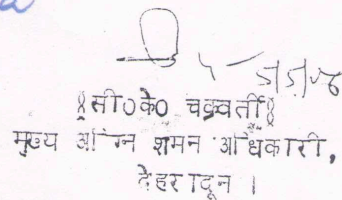 §सी०के० चक्रवर्ती§
मुख्य अग्नि शमन अधिकारी,
देहरादून ।